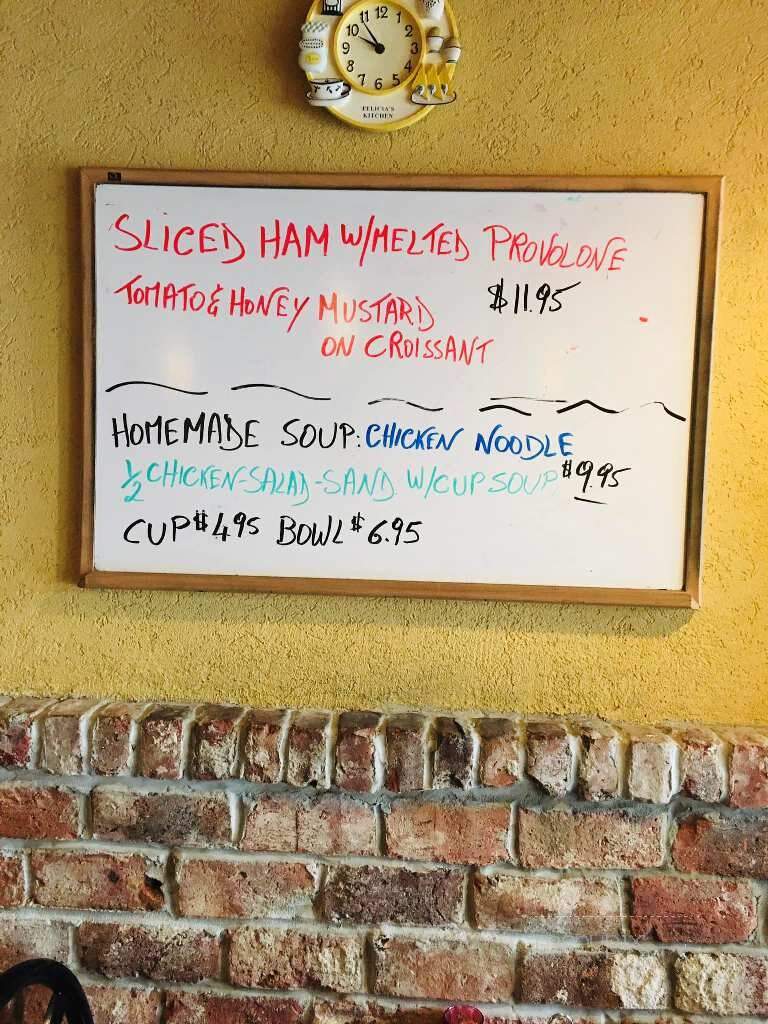 11 12 1
10 2
9 3
8 4
7 6 5
FELICIA'S
KITCHEN
SLICED HAM W/MELTED PROVOLONE
TOMATO & HONEY MUSTARD $11.95
ON CROISSANT
HOMEMADE SOUP: CHICKEN NOODLE
1/2 CHICKEN-SALAD-SAND W/CUP SOUP $9.95
CUP $4.95 BOWL $6.95